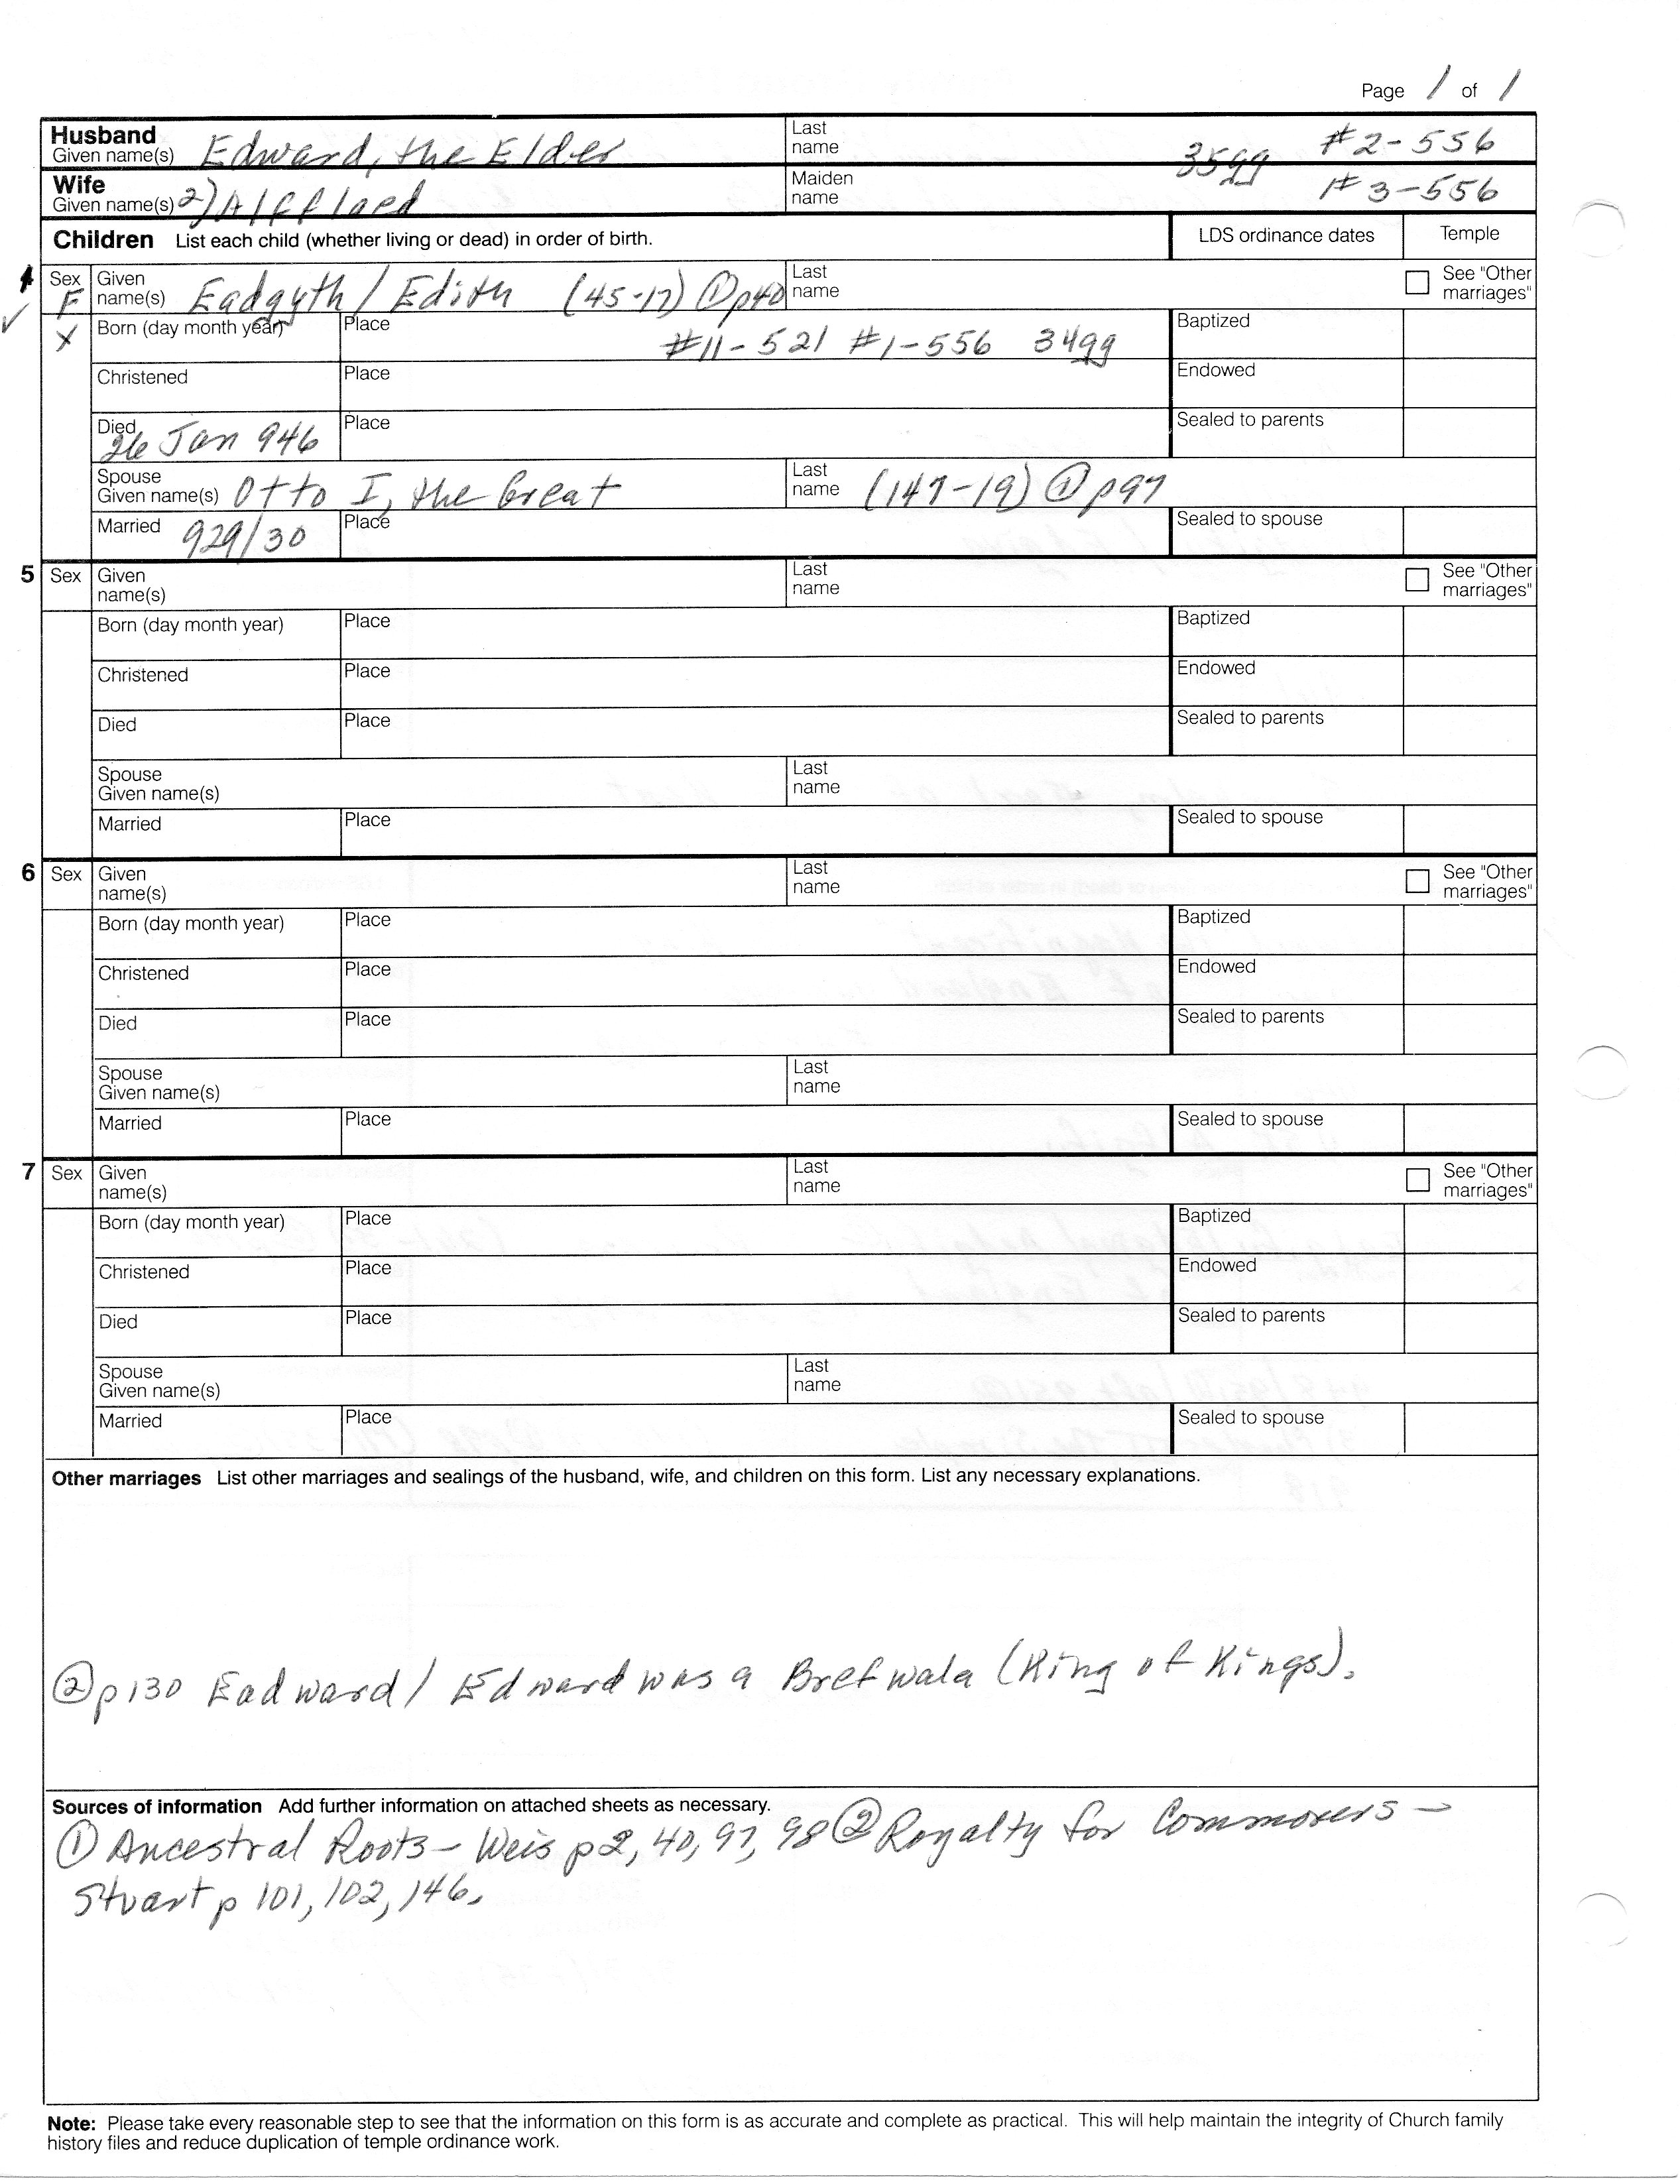 Page 1 of 1
Husband Given name(s) Edward, the Elder Last name 35gg #2-556
Wife Given name(s) 2) Alfflaed Maiden name #3-556
Children List each child (whether living or dead) in order of birth. LDS ordinance dates Temple
Sex F X Given name(s) Eadgyth / Edith (45-17) ① p40 Last name See "Other marriages"
Born (day month year) Place #11-521 #1-556 34gg Baptized
Christened Place Endowed
Died 26 Jan 946 Place Sealed to parents
Spouse Given name(s) Otto I, the Great Last name (147-19) ① p97
Married 929/30 Place Sealed to spouse
5 Sex Given name(s) Last name See "Other marriages"
Born (day month year) Place Baptized
Christened Place Endowed
Died Place Sealed to parents
Spouse Given name(s) Last name
Married Place Sealed to spouse
6 Sex Given name(s) Last name See "Other marriages"
Born (day month year) Place Baptized
Christened Place Endowed
Died Place Sealed to parents
Spouse Given name(s) Last name
Married Place Sealed to spouse
7 Sex Given name(s) Last name See "Other marriages"
Born (day month year) Place Baptized
Christened Place Endowed
Died Place Sealed to parents
Spouse Given name(s) Last name
Married Place Sealed to spouse
Other marriages List other marriages and sealings of the husband, wife, and children on this form. List any necessary explanations.
② p130 Eadward / Edward was a Bretwala (King of Kings).
Sources of information Add further information on attached sheets as necessary.
① Ancestral Roots - Weis p2, 40, 97, 98 ② Royalty for Commoners -
Stuart p 101, 102, 146.
Note: Please take every reasonable step to see that the information on this form is as accurate and complete as practical. This will help maintain the integrity of Church family
history files and reduce duplication of temple ordinance work.